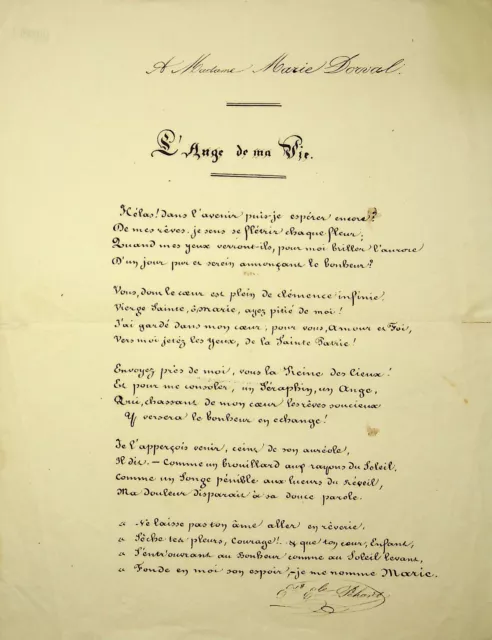 A Madame Marie Dorval.
L'Ange de ma Vie.
Hélas! dans l'avenir puis-je espérer encore?
De mes rêves, je sens se flétrir chaque fleur;
Quand mes yeux verront-ils, pour moi briller l'aurore
D'un jour pur et serein annonçant le bonheur?
Vous, dont le cœur est plein de clémence infinie,
Vierge Sainte, ô Marie, ayez pitié de moi!
J'ai gardé dans mon cœur, pour vous, Amour et Foi,
Vers moi jetez les yeux, de la Sainte Patrie!
Envoyez près de moi, vous la Reine des Cieux!
Et pour me consoler, un Séraphin, un Ange,
Qui, chassant de mon cœur les rêves soucieux
Y versera le bonheur en échange!
Je l'apperçois venir, ceint de son auréole,
Il dit. — Comme un brouillard aux rayons du Soleil,
Comme un Songe pénible aux lueurs du Réveil,
Ma douleur disparait à sa douce parole.
« Ne laisse pas ton âme aller en rêverie,
« Sèche tes pleurs, Courage! & que ton cœur, Enfant,
« S'entr'ouvrant au Bonheur comme au Soleil levant,
« Fonde en moi son espoir, – je me nomme Marie.